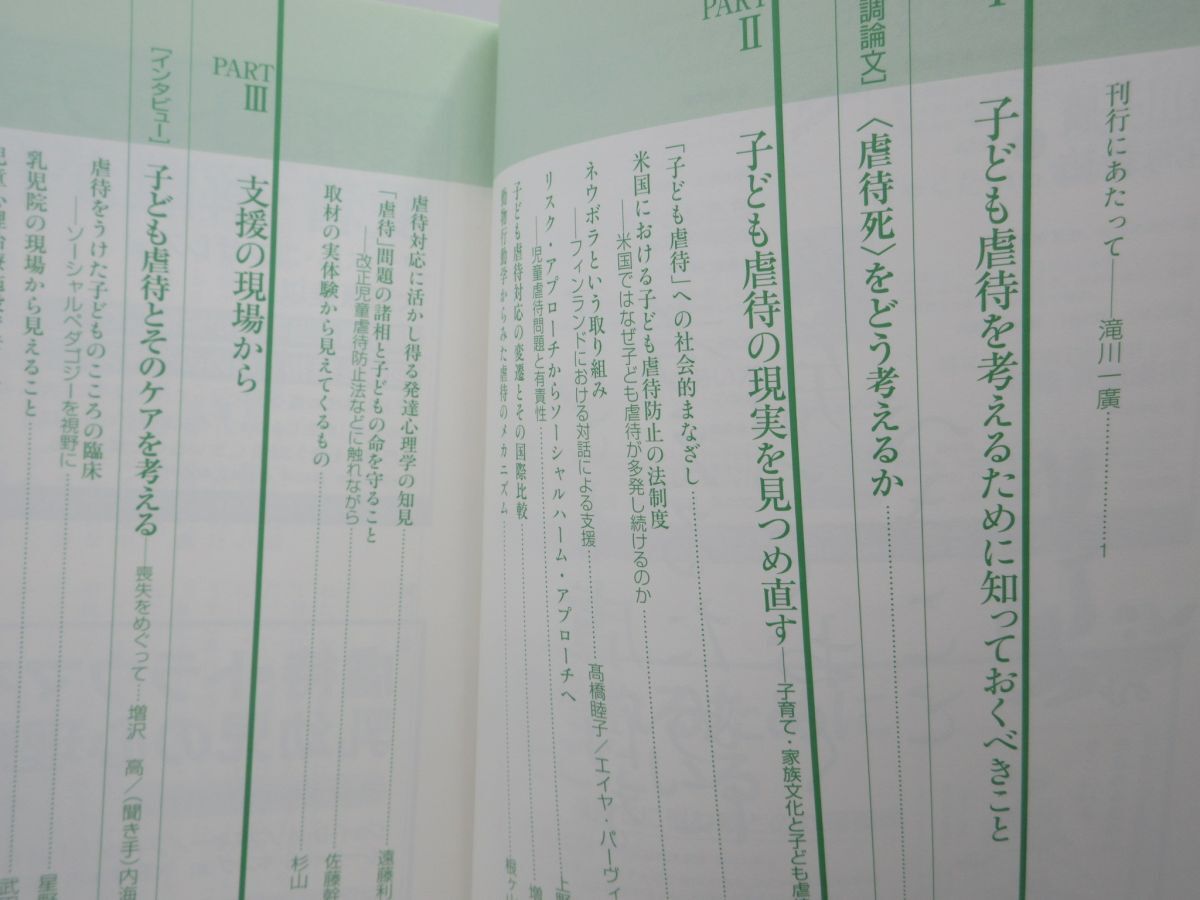 刊行にあたって――滝川一廣…………1
子ども虐待を考えるために知っておくべきこと
調論文］〈虐待死〉をどう考えるか…………
PART
Ⅱ
子ども虐待の現実を見つめ直す――子育て・家族文化と子ども虐
「子ども虐待」への社会的まなざし…………
米国における子ども虐待防止の法制度
――米国ではなぜ子ども虐待が多発し続けるのか…………
ネウボラという取り組み
――フィンランドにおける対話による支援…………髙橋睦子／エイヤ・パーヴィ
リスク・アプローチからソーシャルハーム・アプローチへ
――児童虐待問題と有責性…………上野
子ども虐待対応の変遷とその国際比較…………増
動物行動学からみた虐待のメカニズム…………根ケ
虐待対応に活かし得る発達心理学の知見…………遠藤利
「虐待」問題の諸相と子どもの命を守ること
――改正児童虐待防止法などに触れながら…………佐藤幹
取材の実体験から見えてくるもの…………杉山
PART
Ⅲ
支援の現場から
［インタビュー］子ども虐待とそのケアを考える――喪失をめぐって…増沢　高／（聞き手）内海
虐待をうけた子どものこころの臨床
――ソーシャルペダゴジーを視野に…………星野
乳児院の現場から見えること…………武